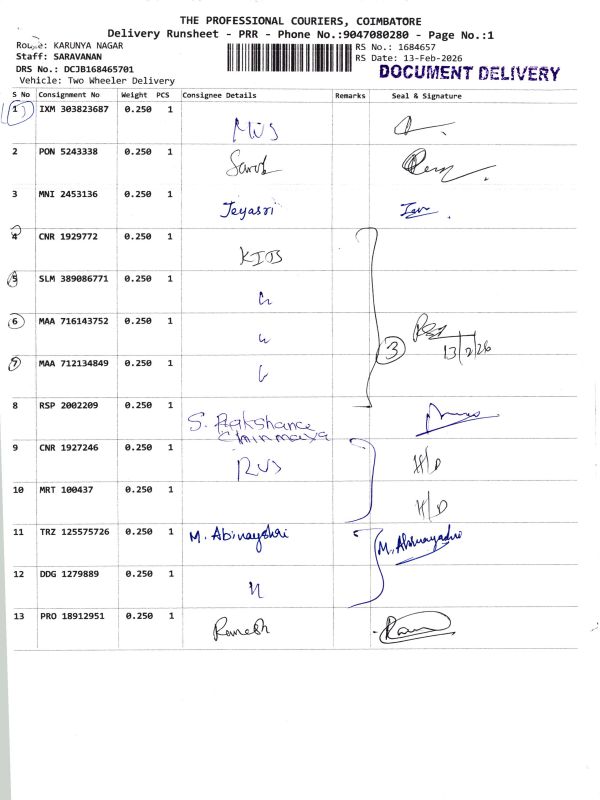 THE PROFESSIONAL COURIERS, COIMBATORE
Delivery Runsheet - PRR - Phone No.:9047080280 - Page No.:1
Route: KARUNYA NAGAR
RS No.: 1684657
Staff: SARAVANAN
RS Date: 13-Feb-2026
DRS No.: DCJB168465701
DOCUMENT DELIVERY
Vehicle: Two Wheeler Delivery
S No Consignment No Weight PCS Consignee Details Remarks Seal & Signature
1 IXM 303823687 0.250 1
2 PON 5243338 0.250 1
3 MNI 2453136 0.250 1 Jeyasri
4 CNR 1929772 0.250 1
5 SLM 389086771 0.250 1
6 MAA 716143752 0.250 1
3 13/2/26
7 MAA 712134849 0.250 1
8 RSP 2002209 0.250 1 S.
Chinmaya
9 CNR 1927246 0.250 1 H/D
10 MRT 100437 0.250 1 H/D
11 TRZ 125575726 0.250 1 M. Abinayshri
12 DDG 1279889 0.250 1
13 PRO 18912951 0.250 1 Ramesh